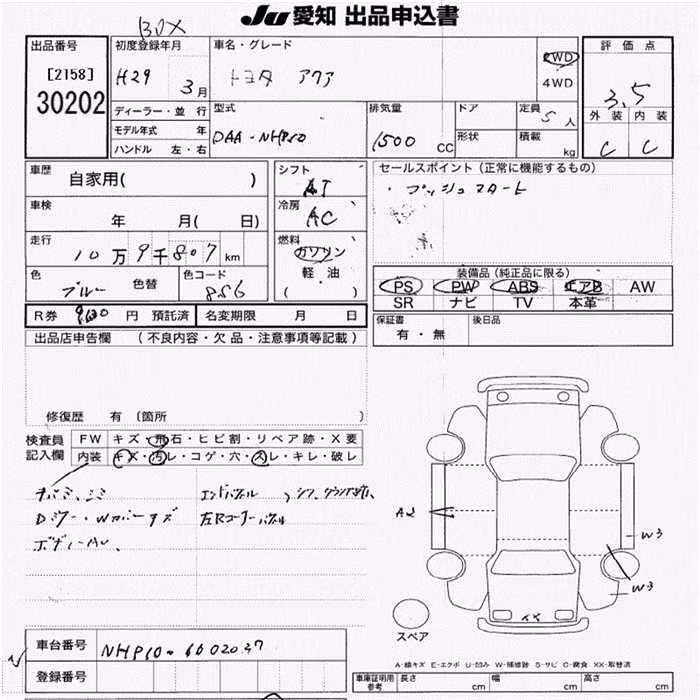 JU 愛知 出品申込書
BOX
出品番号 初度登録年月 車名・グレード 評価点
[2158] H29 3月 トヨタ アクア 2WD 3.5
30202 4WD
ディーラー・並行 型式 排気量 ドア 定員 5人 外装 内装
モデル年式 年 DAA-NHP10 1500 CC 形状 積載 C C
ハンドル 左・右 kg
車歴 自家用( ) シフト AT セールスポイント(正常に機能するもの)
・プッシュスタート
車検 年 月( 日) 冷房 AC
走行 10万9千807km 燃料 ガソリン
軽・油
( )
色 ブルー 色替 色コード 8S6
装備品(純正品に限る)
PS PW ABS エアB AW
SR ナビ TV 本革
R券 円 預託済 名変期限 月 日
保証書 後日品
有・無
出品店申告欄 (不良内容・欠品・注意事項等記載)
修復歴 有 〔箇所 〕
検査員 FW キズ・飛石・ヒビ割・リペア跡・X要
記入欄 内装 キズ・汚レ・コゲ・穴・スレ・キレ・破レ
エンドパネル
左Rコーナーパネル
A2
W3
W3
XX
スペア
車台番号 NHP10-6602037
登録番号
A-線キズ E-エクボ U-凹み W-補修跡 S-サビ C-腐食 XX-取替済
車庫証明用 長さ 幅 高さ
参考 cm cm cm